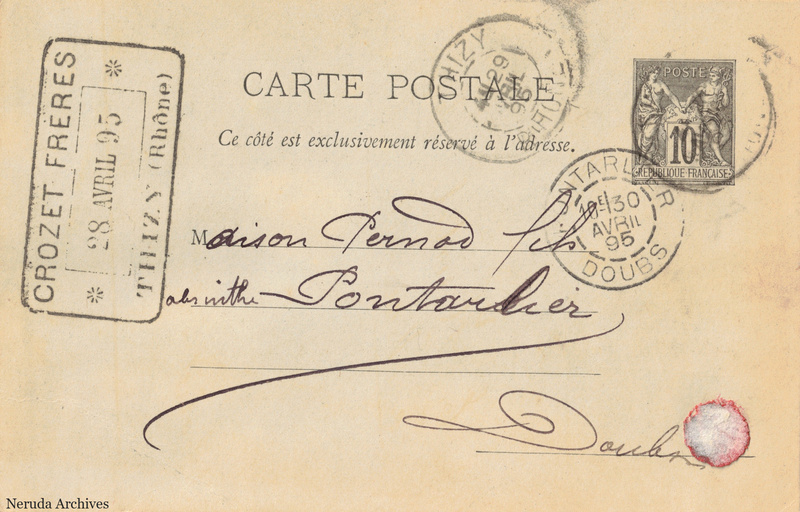 CROZET FRERES
28 AVRIL 95
THIZY (Rhône)
CARTE POSTALE
Ce côté est exclusivement réservé à l'adresse.
THIZY
29
95
POSTE
10
RÉPUBLIQUE FRANÇAISE
PONTARLIER
30
AVRIL
95
DOUBS
Maison Pernod fils
absinthe Pontarlier
Doubs
Neruda Archives